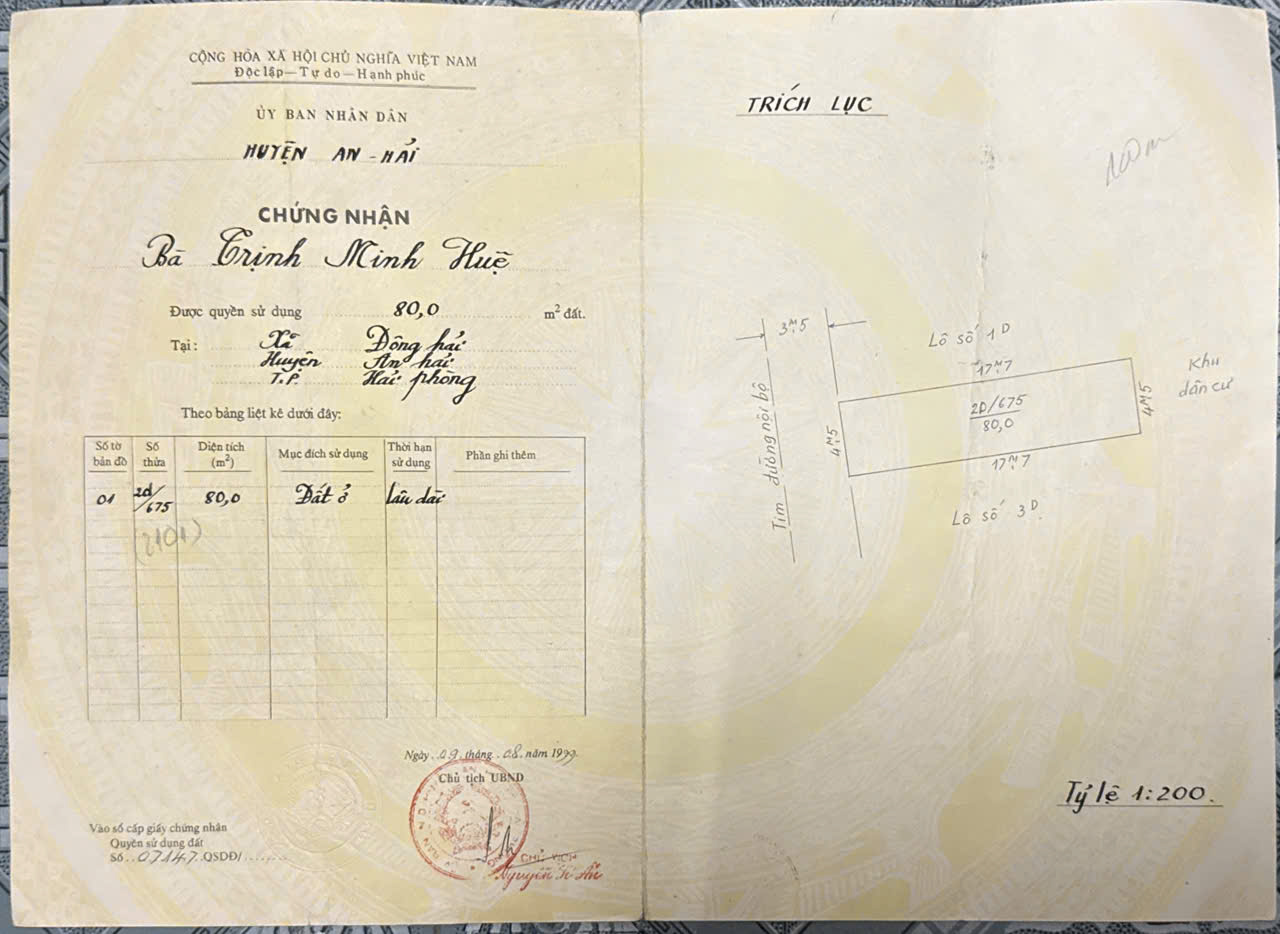 CỘNG HÒA XÃ HỘI CHỦ NGHĨA VIỆT NAM
Độc lập — Tự do — Hạnh phúc
ỦY BAN NHÂN DÂN
HUYỆN AN - HẢI
CHỨNG NHẬN
Bà Trịnh Minh Huệ
Được quyền sử dụng 80,0 m² đất.
Tại: Xã Đông hải
Huyện An hải
T.P. Hải phòng
Theo bảng liệt kê dưới đây:
Số tờ bản đồ Số thửa Diện tích (m²) Mục đích sử dụng Thời hạn sử dụng Phần ghi thêm
01 2d/675 80,0 Đất ở Lâu dài
(2101)
Ngày 09 tháng 08 năm 1999
Chủ tịch UBND
Vào sổ cấp giấy chứng nhận
Quyền sử dụng đất
Số 07147 QSDĐ/
CHỦ TỊCH
TRÍCH LỤC
100m
3M5
Lô số 1D
17M7
Khu
dân cư
2D/675
80,0
4M5
4M5
17M7
Tim đường nội bộ
Lô số 3D
Tỷ lệ 1:200.